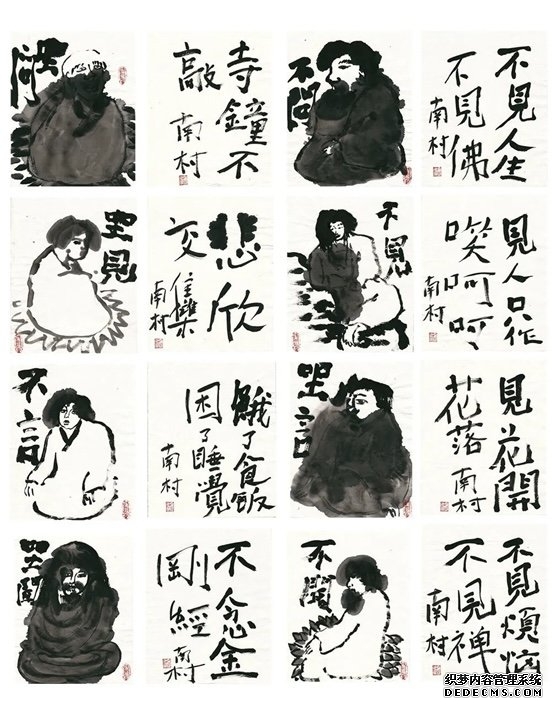 問
寺鐘不
敲
南村
不問
不見人生
不見佛
南村
坐見
悲欣
交集
南村
不見
見人只作
咲呵呵
南村
不言
餓了食飯
困了睡覺
南村
坐言
見花開
花落
南村
坐聞
不念金
剛經
南村
不聞
不見煩惱
不見禅
南村
织梦内容管理系统
DEDECMS.COM